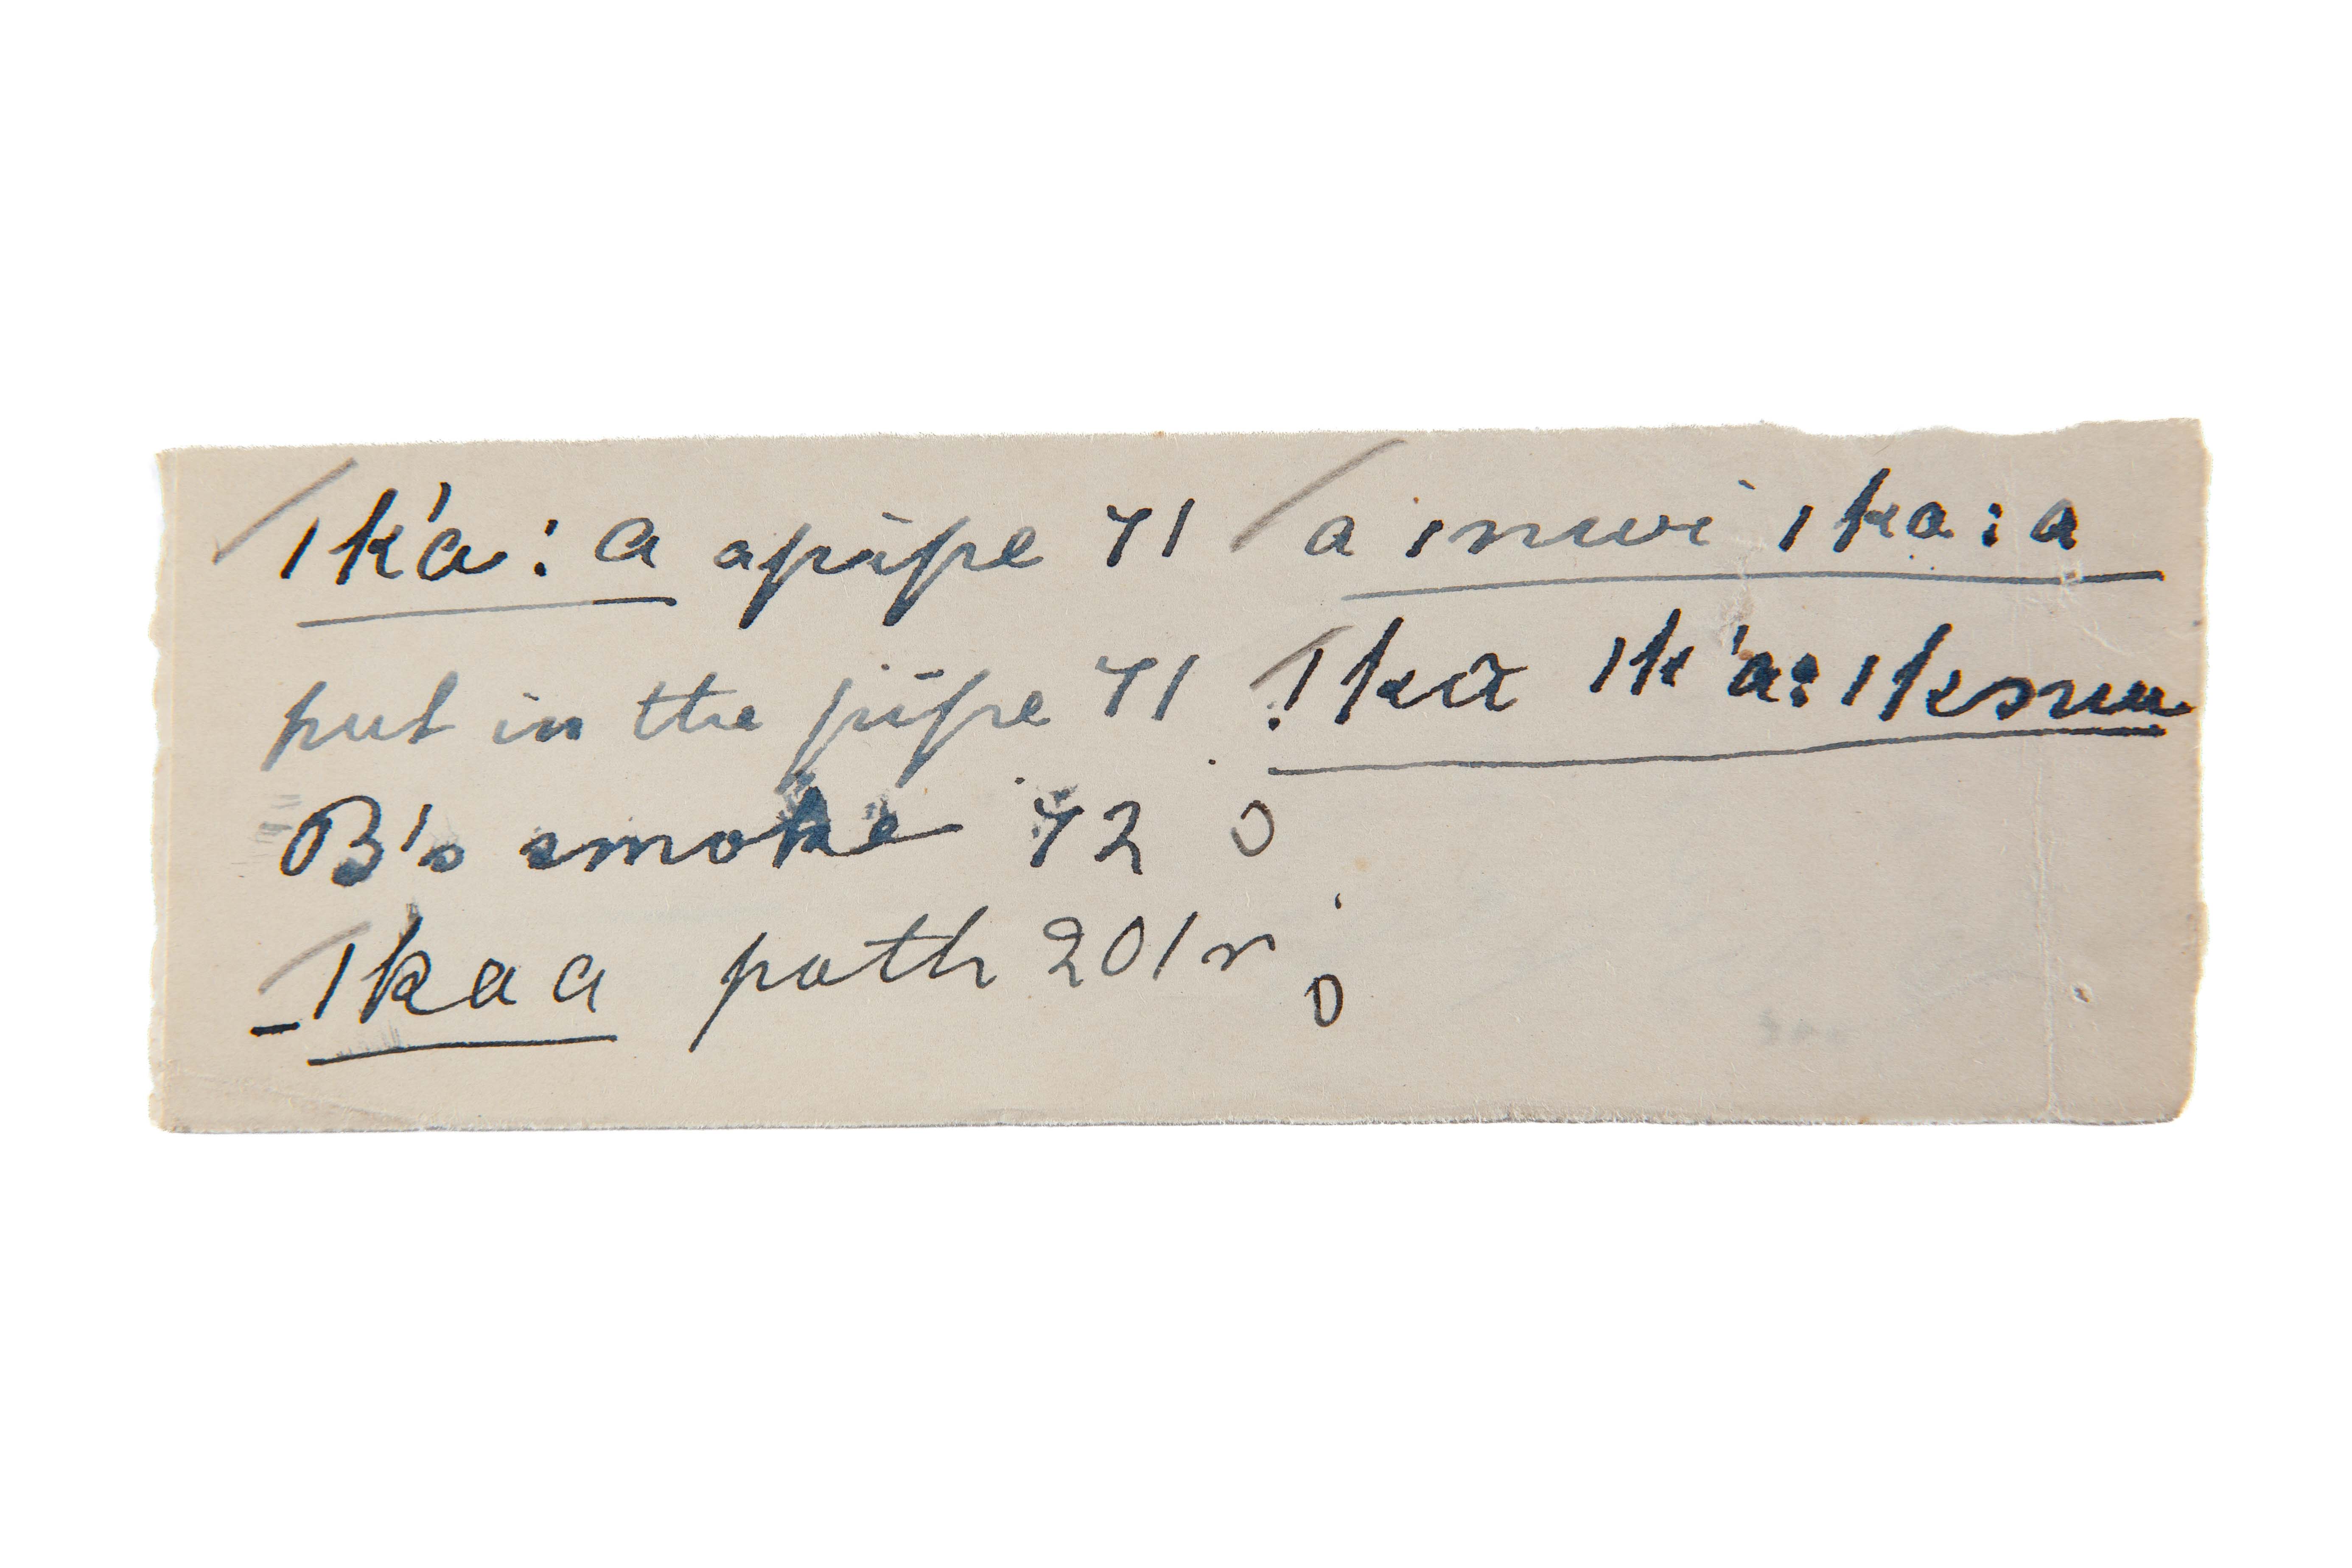 ǀk'a:a a pipe 71 a ǀnuvi ǀka:a
put in the pipe 71 !kã ǀk'a: ǀk
B's smoke 72 0
ǀkaa path 201 r 0